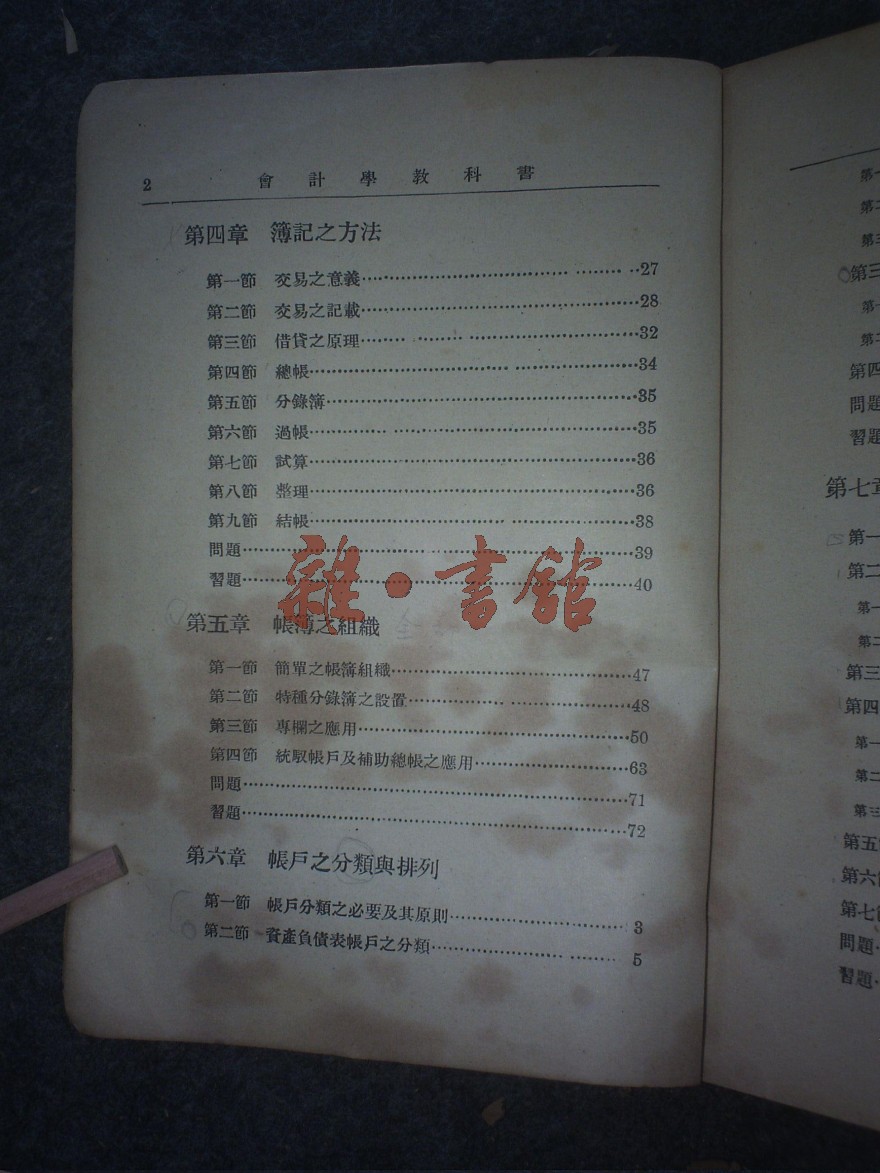 2 會計學教科書
第四章 簿記之方法
第一節 交易之意義……27
第二節 交易之記載……28
第三節 借貸之原理……32
第四節 總帳……34
第五節 分錄簿……35
第六節 過帳……35
第七節 試算……36
第八節 整理……36
第九節 結帳……38
問題……39
習題……40
雜·書館
第五章 帳簿之組織
第一節 簡單之帳簿組織……47
第二節 特種分錄簿之設置……48
第三節 專欄之應用……50
第四節 統馭帳戶及補助總帳之應用……63
問題……71
習題……72
第六章 帳戶之分類與排列
第一節 帳戶分類之必要及其原則……3
第二節 資產負債表帳戶之分類……5
第三
第四
問題
習題
第七章
第一
第二
第三
第四
第五
第六
第七節
問題
習題